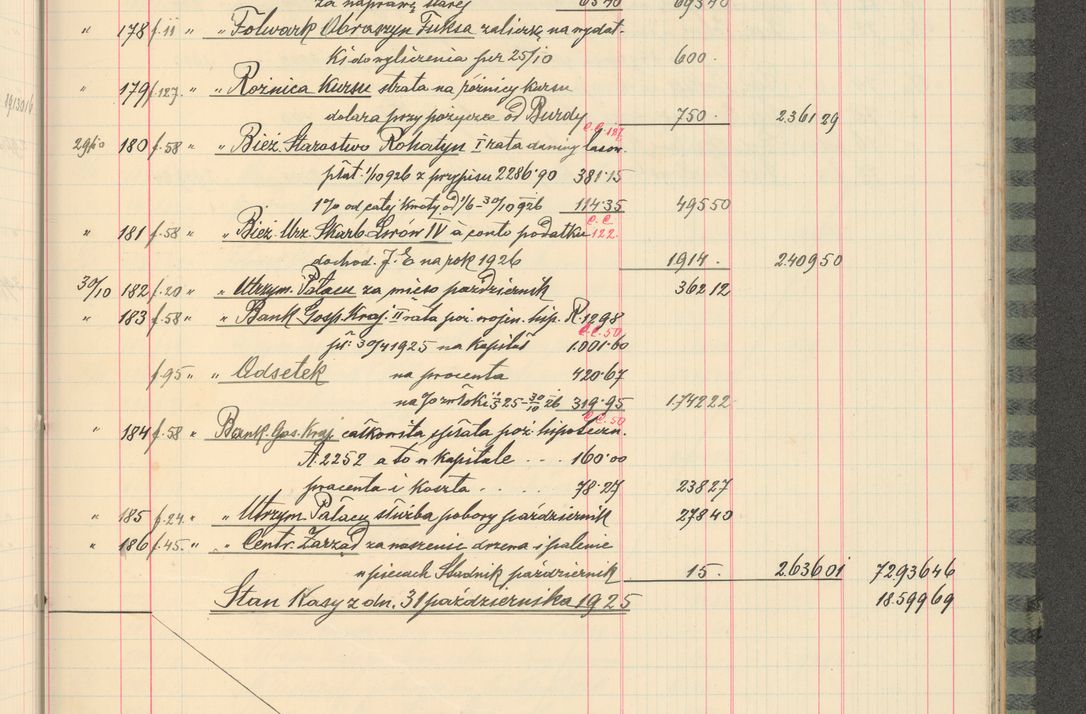 za naprawę starej 6540 69540
" 178 f. 11 " " Folwark Obroszyn Fuksa zaliczkę na wydat-
ki do wyliczenia per 25/10 600.
" 179 f. 127. " " Różnica Kursu strata na różnicy kursu
dolara przy pożyczce od Burdy 750. 2.361 29
C.C. 127
29/10 180 f. 58 " " Bież. Starostwo Rohatyn I rata daniny lasow.
płat. 1/10 926 z przypisu 2286·90 381·15
1% od całej kwoty od 1/6 - 30/10 926 114·35 495 50
C.C. 122.
" 181 f. 58 " " Bież. Urz. Skarb. Lwów IV à conto podatku
dochod. J. E. na rok 1926 1914. 2.409 50
30/10 182 f. 20 " " Utrzym. Pałacu za mięso październik 362 12
" 183 f. 58 " " Bank Gosp. Kraj. II rata poż. wojen. hip. R. 1298
C.C. 50
pł. 30/4 1925 na Kapitał 1.001·60
f. 95 " " Odsetek na procenta 420·67
na % zwłoki 1/5 25 - 30/10 26 319·95 1.742 22
C.C. 50
" 184 f. 58 " Bank. Gos. Kraj całkowita spłata poż. hipoteczn.
A. 2252 a to w Kapitale . . . 160·00
procenta i Koszta . . . . 78·27 238 27
" 185 f. 24. " " Utrzym. Pałacu służba pobory październik 278 40
" 186 f. 45. " " Centr. Zarząd za noszenie drzewa i palenie
w piecach Stadnik październik 15. 2.636 01 72936 46
Stan Kasy z dn. 31 października 1925 18.599 69